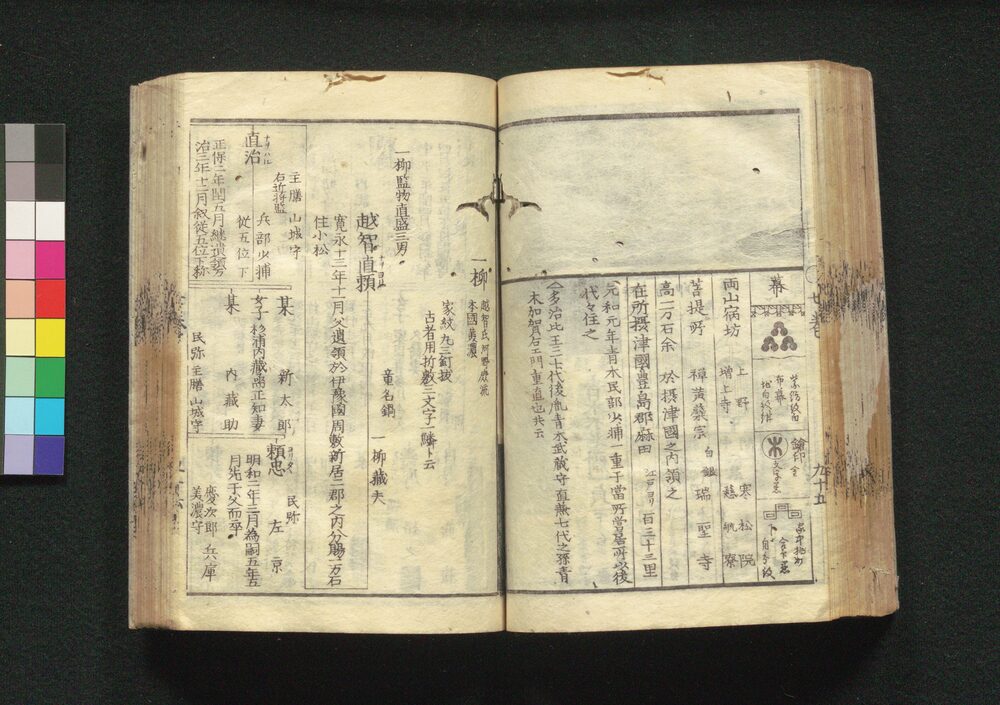 幕
紫絹紋白
布幕
地白紋紺
鎗印 金
文字黒
両山宿坊
上野 寒松院
増上寺 慈帆寮
菩提所 禅黄蘗宗 白銀 瑞聖寺
高一万石余 於摂津國之内領之
在所摂津國豊島郡麻田 江戸ヨリ 百三十三里
元和元年青木民部少輔一重于當所営居所以後
代々住之
多治比王三十七代後胤青木武蔵守直兼七代之孫青
木加賀右エ門重直也共云
九十五
一柳
越智氏河野庶流
本國美濃
家紋丸三釘抜
古者用折敷三文字二鱗ト云
一柳監物直盛三男
童名鍋
一柳蔵夫
越智直頼
寛永十三年十一月父遺領於伊豫國周敷新居二郡之内分賜一万石
住小松
直治
ナヲハル
主膳 山城守
右近将監
兵部少輔
従五位下
正保二年閏五月継遺領万
治三年十二月叙従五位下称
某 新太郎
女子 杉浦内蔵尚正知妻
某 内蔵助
民弥 主膳 山城守
頼忠
ヨリタヽ
民弥
左京
明和二年三月為嗣五年五
月先于父而卒
慶次郎 兵庫
美濃守